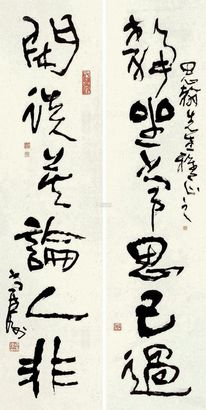 思翰先生雅正
靜坐常思己過
閑談莫論人非